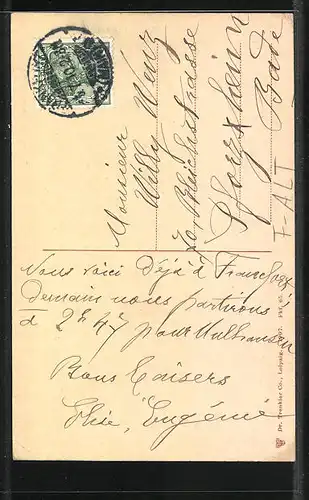 Monsieur
Willy Wenz
70, Bleichstrasse
Pforzheim
Bade
F-ALT
Nous voici Déjà à
Demain nous partirons
à 2h 47 pour Mulhausen
Bons Baisers
Elise, Eugénie
Dr. Trenkler Co., Leipzig.